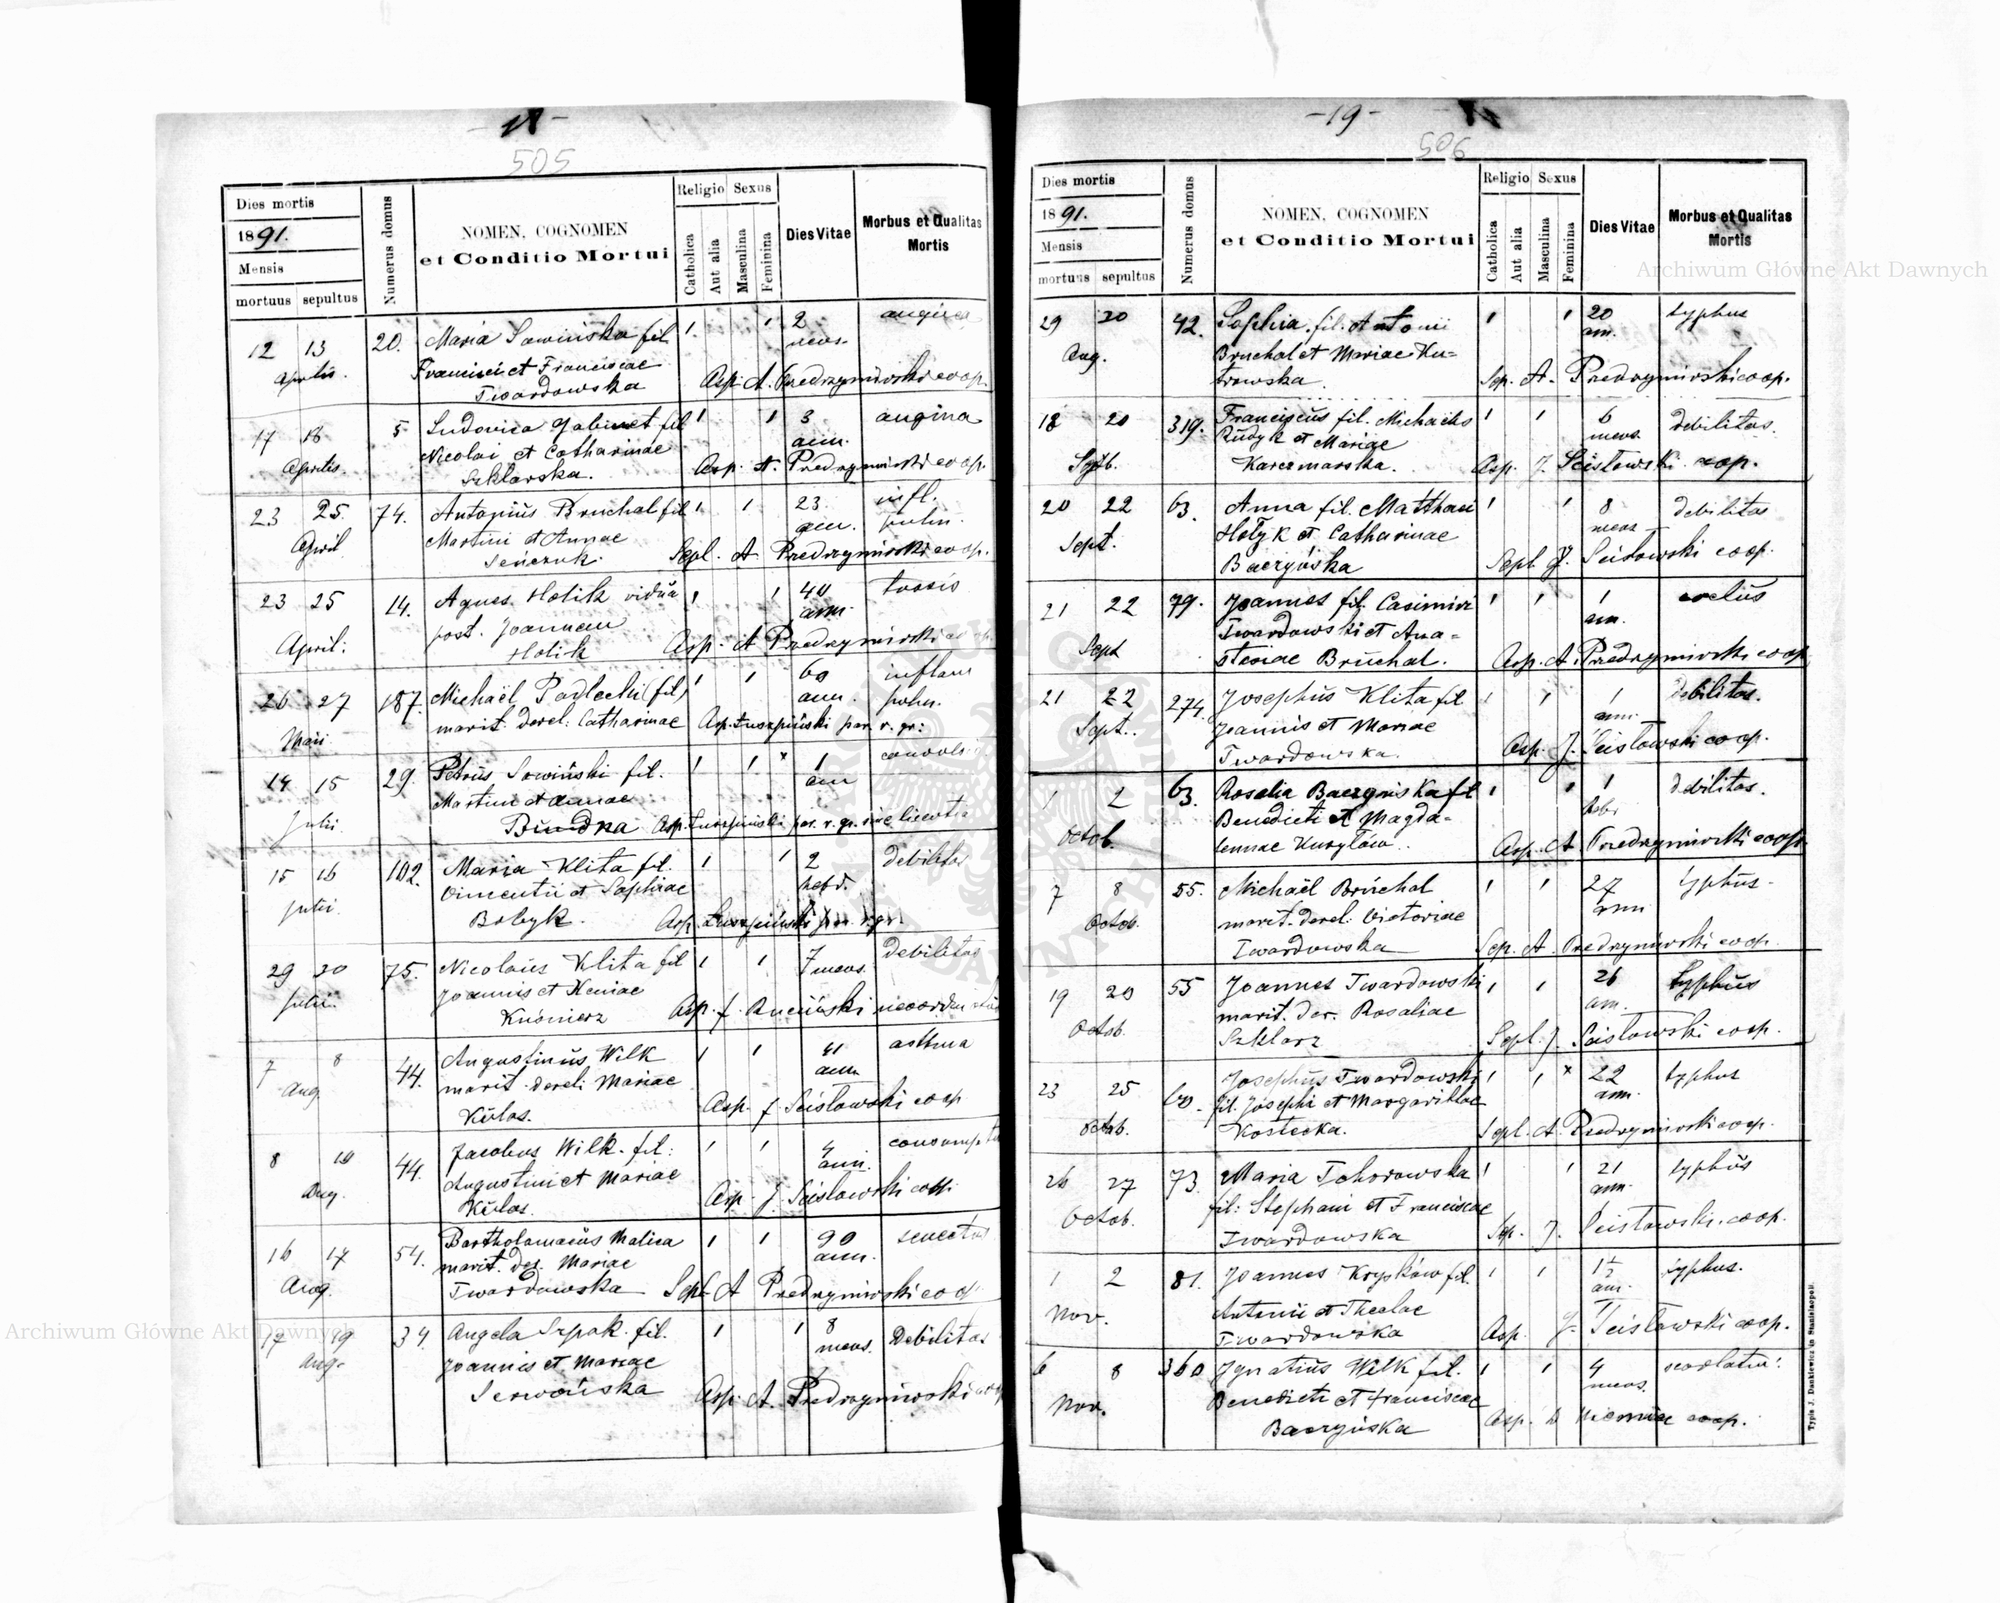 505
Dies mortis
1891.
Mensis
mortuus sepultus
Numerus domus
NOMEN, COGNOMEN
et Conditio Mortui
Religio Sexus
Catholica
Aut alia
Masculina
Feminina
Dies Vitae
Morbus et Qualitas
Mortis
12 13 20. Maria Sowińska fil. 2 angina
Aprilis. Francisci et Franciscae mens.
Twardowska Asp. A. Predrzymirski coop.
17 18 5 Ludovica Gabinet fil 3 angina
Aprilis Nicolai et Catharinae ann.
Szklarska. Asp. A. Predrzymirski coop.
23 25. 74. Antonius Bruchal fil 23 infl.
April Martini et Annae ann. pulm.
Senczuk. Sepl. A Predrzymirski coop.
23 25 14. Agnes Holik vidua 40 tussis
April: post. Joannem ann.
Holik Asp. A Predrzymirski coop.
26 27 187. Michaël Podlecki (fil) 60 inflam
Maii marit. derel. Catharinae ann. pulm.
Asp. Luszpiński par. r. gr:
14 15 29. Petrus Sowiński fil. 1
Julii Martini et Annae ann
Asp. Luszpiński par. r. gr.
15 16 102. Maria Klita fil. 2 debilitas
Julii. Vincentii et Sophiae hebd.
Bobyk. Asp. Luszpiński par. r. gr.
29 30 75. Nicolaus Klita fil 7 mens. debilitas
Julii Joannis et Xeniae
Kusnierz Asp. J.
7 8 44. Augustinus Wilk 41 asthma
Aug marit. derel. Mariae ann.
Kulas. Asp. J Scisłowski coop
8 10 44. Jacobus Wilk. fil: 4
Aug. Augustini et Mariae ann.
Kulas. Asp. J. Scisłowski coop.
16 17 54. Bartholomaeus Malica 90 senectus
Aug. marit. der. Mariae ann.
Twardowska Sepl A Predrzymirski coop
17 19 34. Angela Szpak. fil. 8 Debilitas
Aug. Joannis et Mariae mens.
Asp. A. Predrzymirski coop
-19-
506
Dies mortis
1891.
Mensis
mortuus sepultus
Numerus domus
NOMEN, COGNOMEN
et Conditio Mortui
Religio Sexus
Catholica
Aut alia
Masculina
Feminina
Dies Vitae
Morbus et Qualitas
Mortis
29 30 42. Sophia. fil. Antonii 20 typhus
Aug. Bruchal et Mariae Ku-
trowska. ann. Sep. A. Predrzymirski coop.
18 20 319. Franciscus fil. Michaelis 6 debilitas.
Rudyk et Mariae mens
Septb. Karczmarska. Asp. J. Scisłowski coop.
20 22 63. Anna fil. Matthaei 8 debilitas
Sept. Hołyk et Catharinae mens
Baczyńska Sepl. J. Scisłowski coop.
21 22 79. Joannes fil. Casimiri 1
Twardowski et Ana- ann.
Sept stasiae Bruchal. Asp. A. Predrzymirski coop
21 22 274. Josephus Klita fil 1 debilitas.
Sept. Joannis et Mariae ann.
Twardowska. Asp. J. Scisłowski coop.
1 2 63. Rosalia Baczyńska fil 1 debilitas.
Benedicti et Magda- heb.
Octob. lennae Kuryłów. Asp. A Predrzymirski coop.
7 8 55. Michaël Bruchal 27 typhus.
Octob. marit. derel. Victoriae ann
Twardowska Sep. A. Predrzymirski coop.
19 20 55 Joannes Twardowski 26 typhus
marit. der. Rosaliae ann.
Octob. Szklarz Sepl. J. Scisłowski coop.
23 25 60. Josephus Twardowski 22 typhus
fil. Josephi et Margarithae ann.
Octob. Kostecka. Sepl. A. Predrzymirski coop.
26 27 73. Maria Tchorowska 21 typhus
Octob. fil: Stephani et Franciscae ann.
Twardowska Sep. J. Scisłowski. coop.
1 2 81. Joannes Kryśków fil. 1½ typhus.
Nov. Antonii et Theclae ann.
Twardowska Asp. J. Scisłowski coop.
6 8 360 Ignatius Wilk fil. 4 scarlatin:
Nov. Benedicti et Franciscae mens.
Baczyńska Asp. coop.
Typis J. Dankiewicz in Stanislaopoli.
Archiwum Główne Akt Dawnych
Archiwum Główne Akt Dawnych